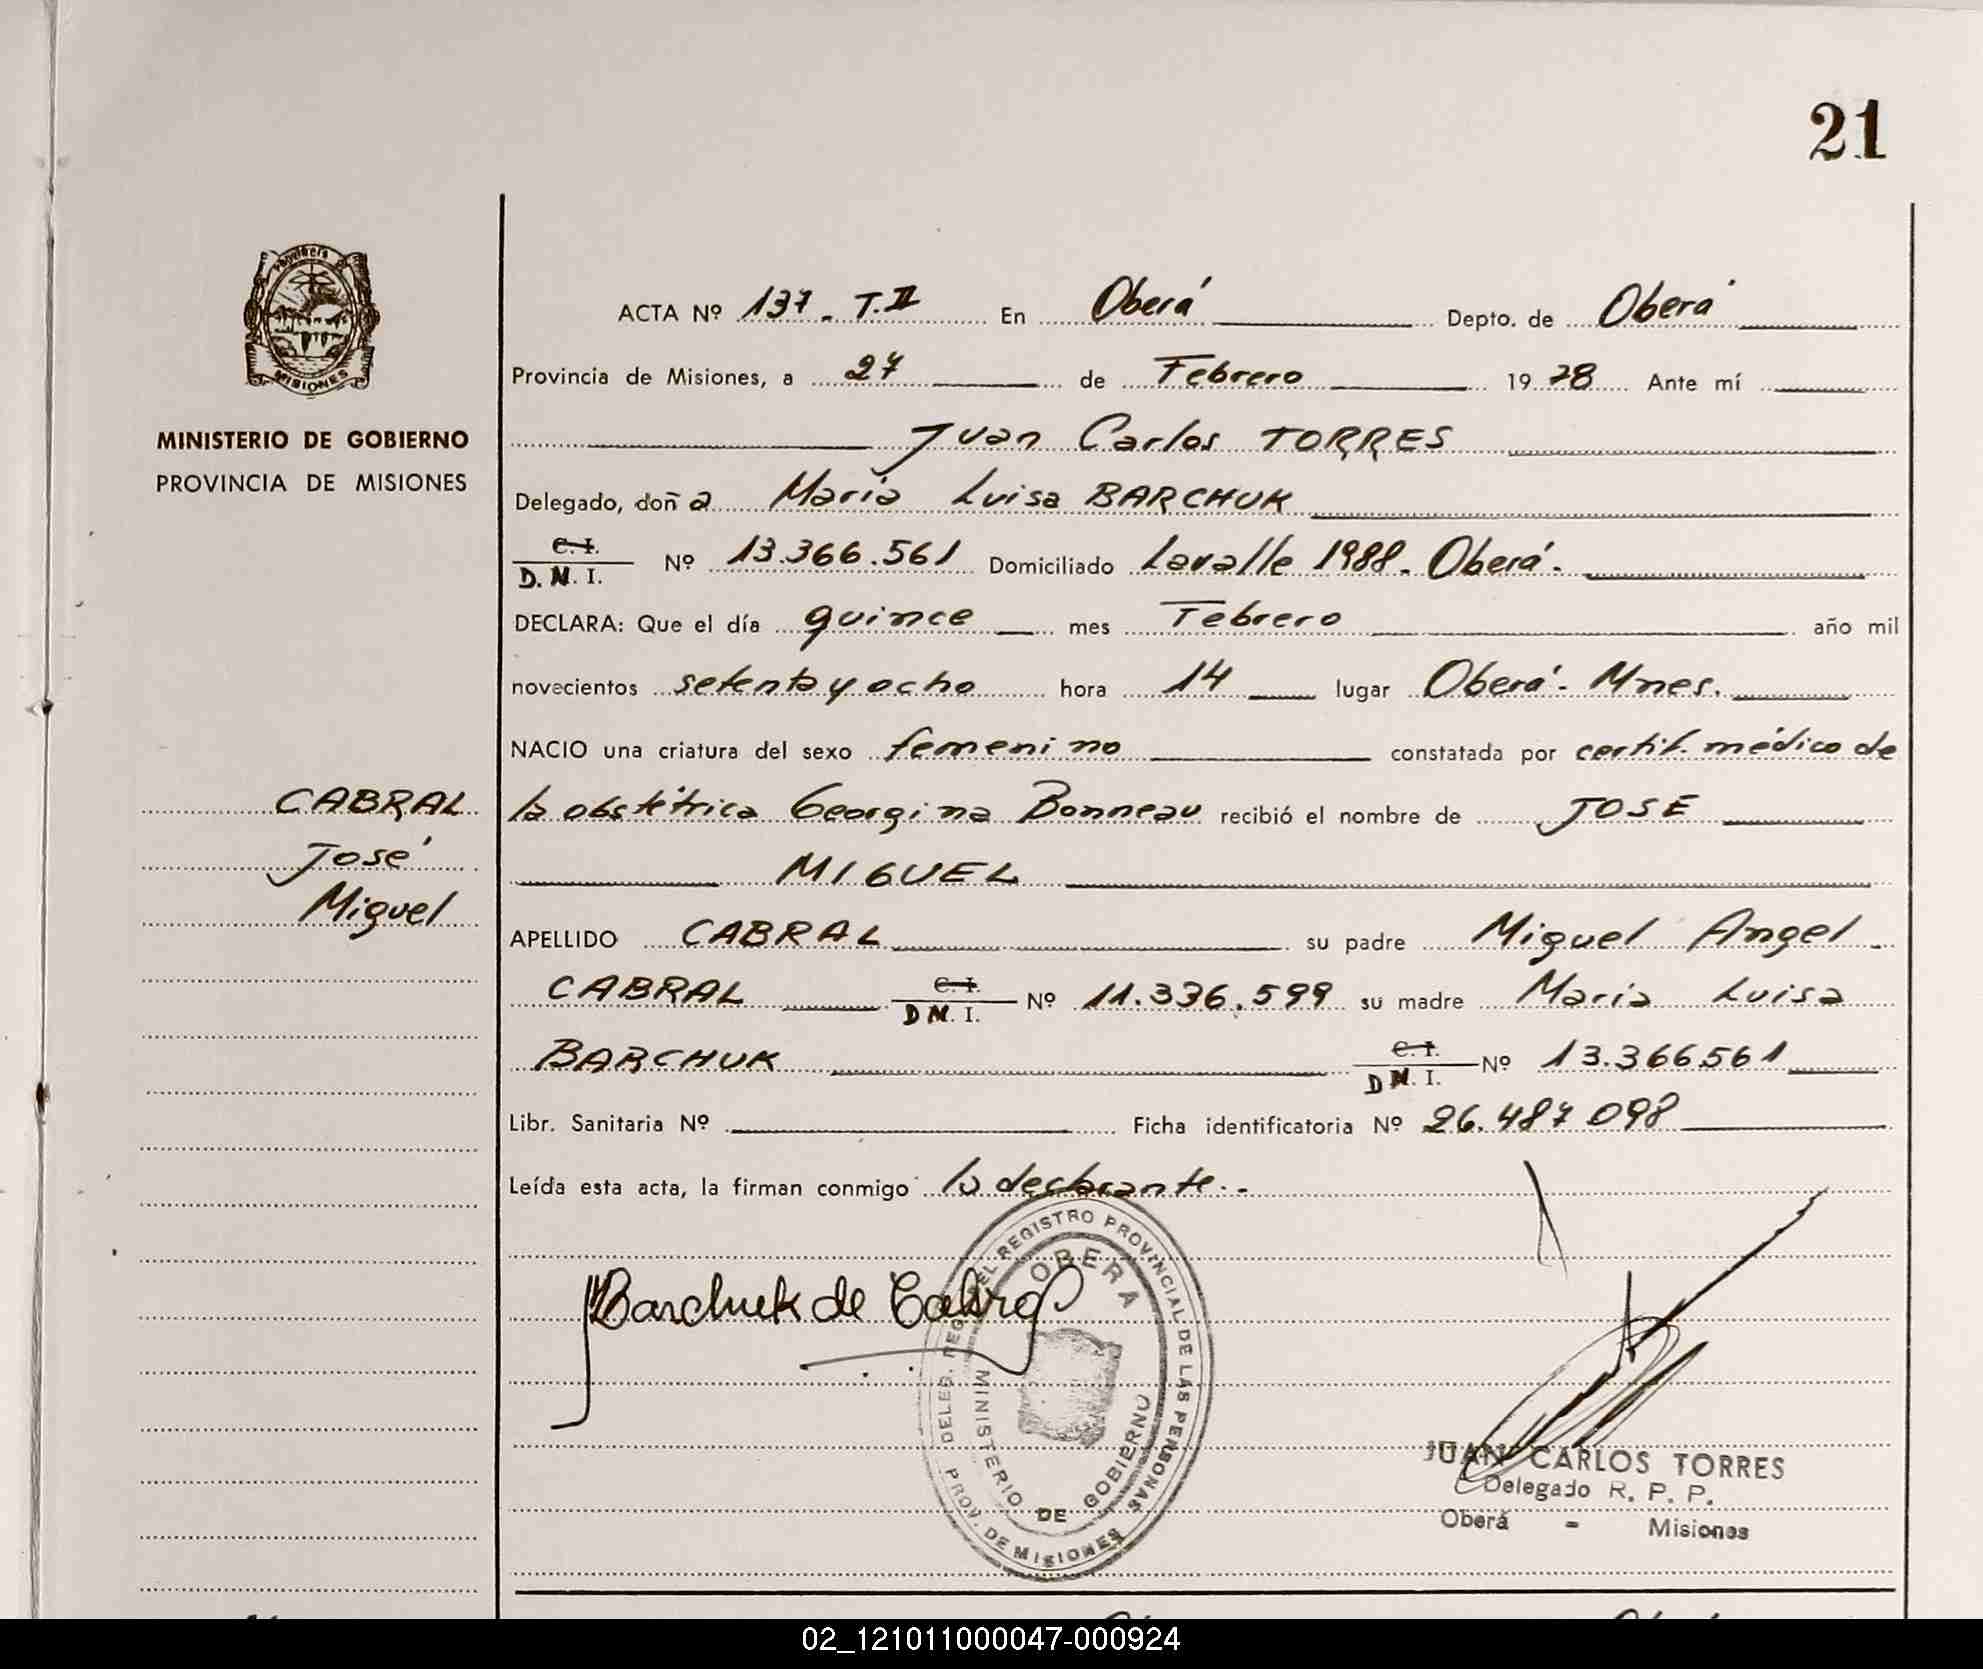 21
PROVINCIA
MISIONES
MINISTERIO DE GOBIERNO
PROVINCIA DE MISIONES
CABRAL
José
Miguel
ACTA Nº 137 - T.II En Oberá Depto. de Oberá
Provincia de Misiones, a 27 de Febrero 1978 Ante mí
Juan Carlos TORRES
Delegado, doña María Luisa BARCHUK
C. I.
D. N. I. Nº 13.366.561 Domiciliado Lavalle 1988 - Oberá -
DECLARA: Que el día quince mes Febrero año mil
novecientos setenta y ocho hora 14 lugar Oberá - Mnes.
NACIO una criatura del sexo femenino constatada por certif. médico de
la obstétrica Georgina Bonneau recibió el nombre de JOSE
MIGUEL
APELLIDO CABRAL su padre Miguel Angel
CABRAL C. I. D N. I. Nº 11.336.599 su madre María Luisa
BARCHUK C. I. D N. I. Nº 13.366.561
Libr. Sanitaria Nº Ficha identificatoria Nº 26.487.098
Leída esta acta, la firman conmigo la declarante. -
Barchuk de Cabral
DEL REGISTRO PROVINCIAL DE LAS PERSONAS
OBERA
MINISTERIO DE GOBIERNO
PROV. DE MISIONES
JUAN CARLOS TORRES
Delegado R. P. P.
Oberá - Misiones
02_121011000047-000924